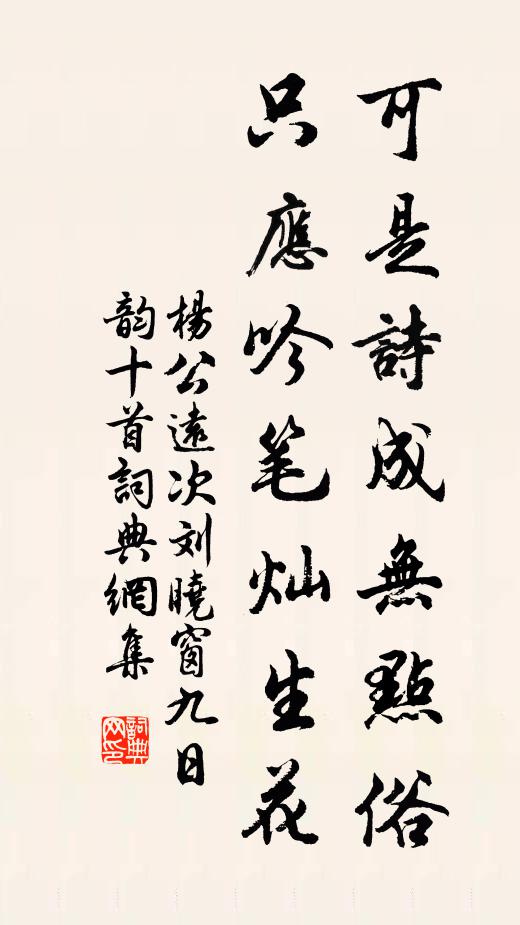 可是詩成無點俗
只應吟笔灿生花
楊公遠次刘曉窗九日
韵十首詞典網集
詞典網印